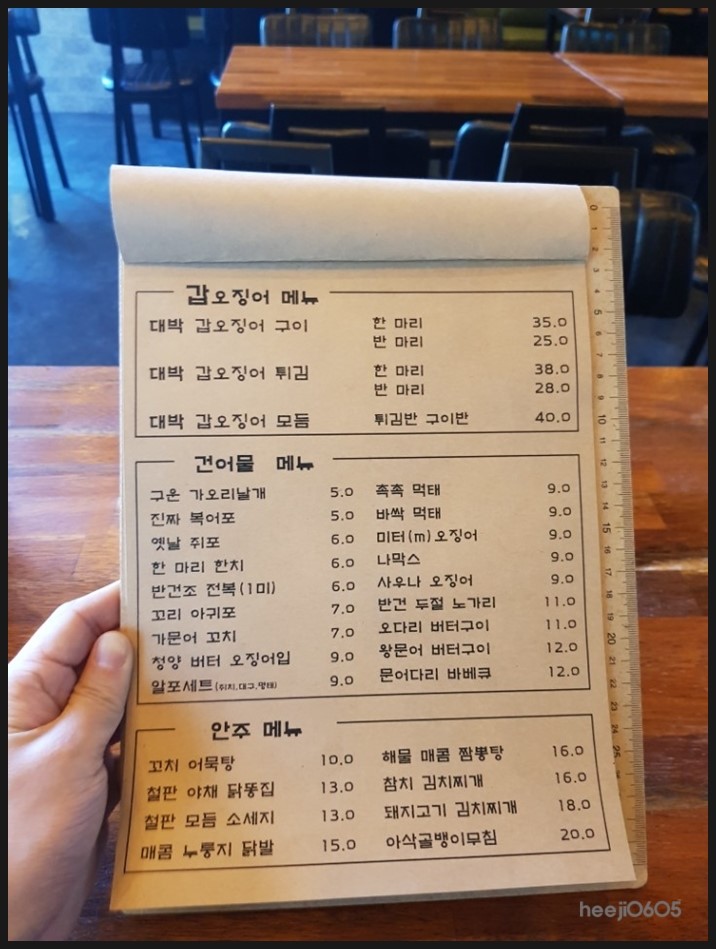 갑오징어 메뉴
대박 갑오징어 구이 한 마리 35.0
반 마리 25.0
대박 갑오징어 튀김 한 마리 38.0
반 마리 28.0
대박 갑오징어 모듬 튀김반 구이반 40.0
건어물 메뉴
구운 가오리날개 5.0 촉촉 먹태 9.0
진짜 복어포 5.0 바싹 먹태 9.0
옛날 쥐포 6.0 미터(m)오징어 9.0
한 마리 한치 6.0 나막스 9.0
반건조 전복(1미) 6.0 사우나 오징어 9.0
꼬리 아귀포 7.0 반건 두절 노가리 11.0
가문어 꼬치 7.0 오다리 버터구이 11.0
청양 버터 오징어입 9.0 왕문어 버터구이 12.0
알포세트(쥐치,대구,명태) 9.0 문어다리 바베큐 12.0
안주 메뉴
꼬치 어묵탕 10.0 해물 매콤 짬뽕탕 16.0
철판 야채 닭똥집 13.0 참치 김치찌개 16.0
철판 모듬 소세지 13.0 돼지고기 김치찌개 18.0
매콤 누룽지 닭발 15.0 아삭골뱅이무침 20.0
0 1 2 3 4 5 6 7 8 9 10 11 12 13 14 15 16 17 18 19 20 21 22 23 24 25
heeji0605